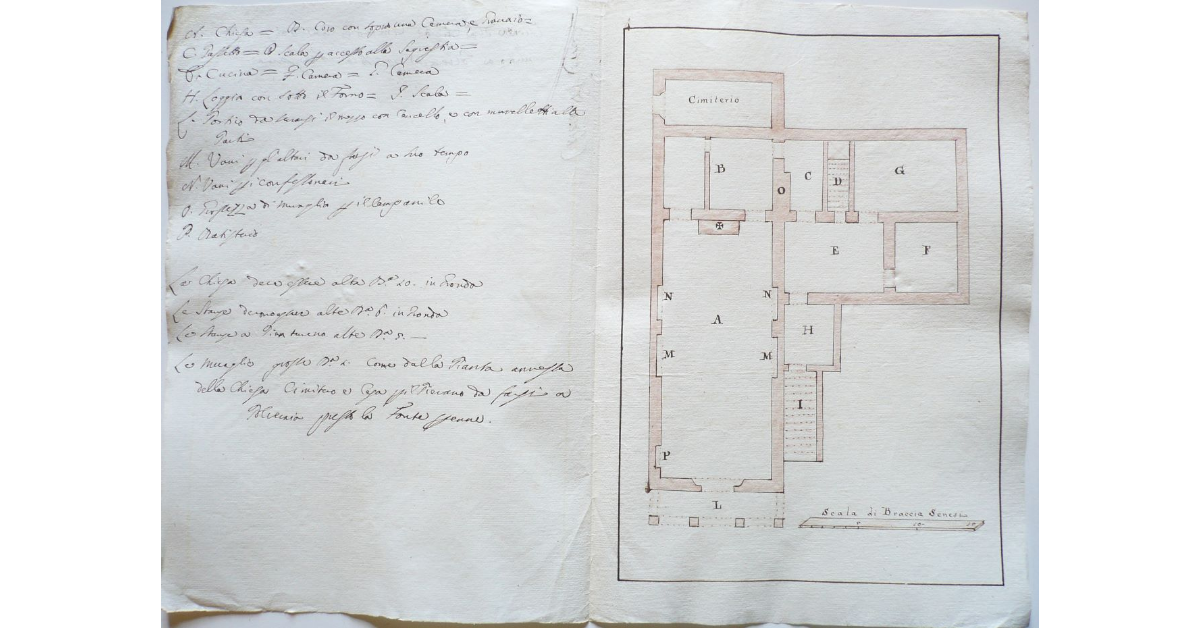 A. Chiesa = B. Coro con sopra una Camera, e Granaio =
C. Passetto = D. Scala p accesso alla Sagrestia =
E. Cucina = F. Camera = G. Camera
H. Loggia con sotto il Forno = I. Scala =
L. Portico da farsi il mezzo con Cancello, e con muralletti alle
parti
M. Vani p gl'altari da farsi a suo tempo
N. Vani pi confessionari
O. Grossezza di muraglia p il Campanile
P. Battistero
La Chiesa deve essere alta Ba. 20. in Gronda
Le Stanze devono essere alte Ba. 6. in Gronda
Le Stanze a Pian terreno alte Ba. 5. —
Le muraglie grosse Ba. Come dalla Pianta annessa
della Chiesa Cimitero e Casa pil Pievano da farsi a
presso la Fonte
Cimiterio
B
C
D
G
O
E
F
N
N
A
H
M
M
I
P
L
Scala di Braccia Senesi